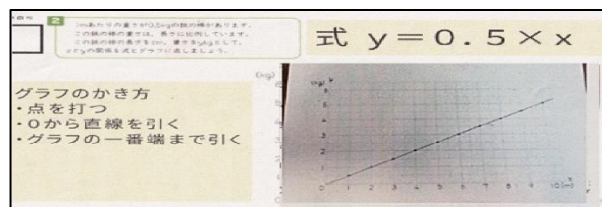 2
1mあたりの重さが0.5kgの鉄の棒があります。
この鉄の棒の重さは、長さに比例しています。
この鉄の棒の長さをxm、重さをykgとして、
xとyの関係を式とグラフに表しましょう。
式 y＝0.5×x
グラフのかき方
・点を打つ
・0から直線を引く
・グラフの一番端まで引く
(kg)
(kg) y
6
5
4
3
2
1
0 1 2 3 4 5 6 7 8 9 10 (m)
x